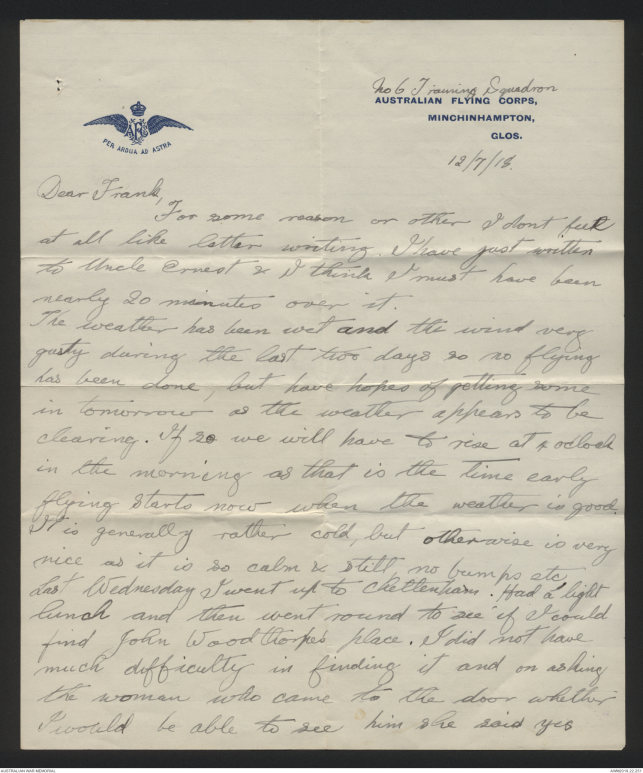 No 6 Training Squadron
AUSTRALIAN FLYING CORPS,
MINCHINHAMPTON,
GLOS.
AFC
PER ARDUA AD ASTRA
12/7/18.
Dear Frank,
For some reason or other I dont feel
at all like letter writing. I have just written
to Uncle Ernest & I think I must have been
nearly 20 minutes over it.
The weather has been wet and the wind very
gusty during the last two days so no flying
has been done, but have hopes of getting some
in tomorrow as the weather appears to be
clearing. If so we will have to rise at 4 oclock
in the morning as that is the time early
flying starts now when the weather is good.
It is generally rather cold, but otherwise is very
nice as it is so calm & still, no bumps etc
Last Wednesday I went up to Cheltenham. Had a light
lunch and then went round to see if I could
find John Woodthorpe's place. I did not have
much difficulty in finding it and on asking
the woman who came to the door whether
I would be able to see him she said yes
AUSTRALIAN WAR MEMORIAL